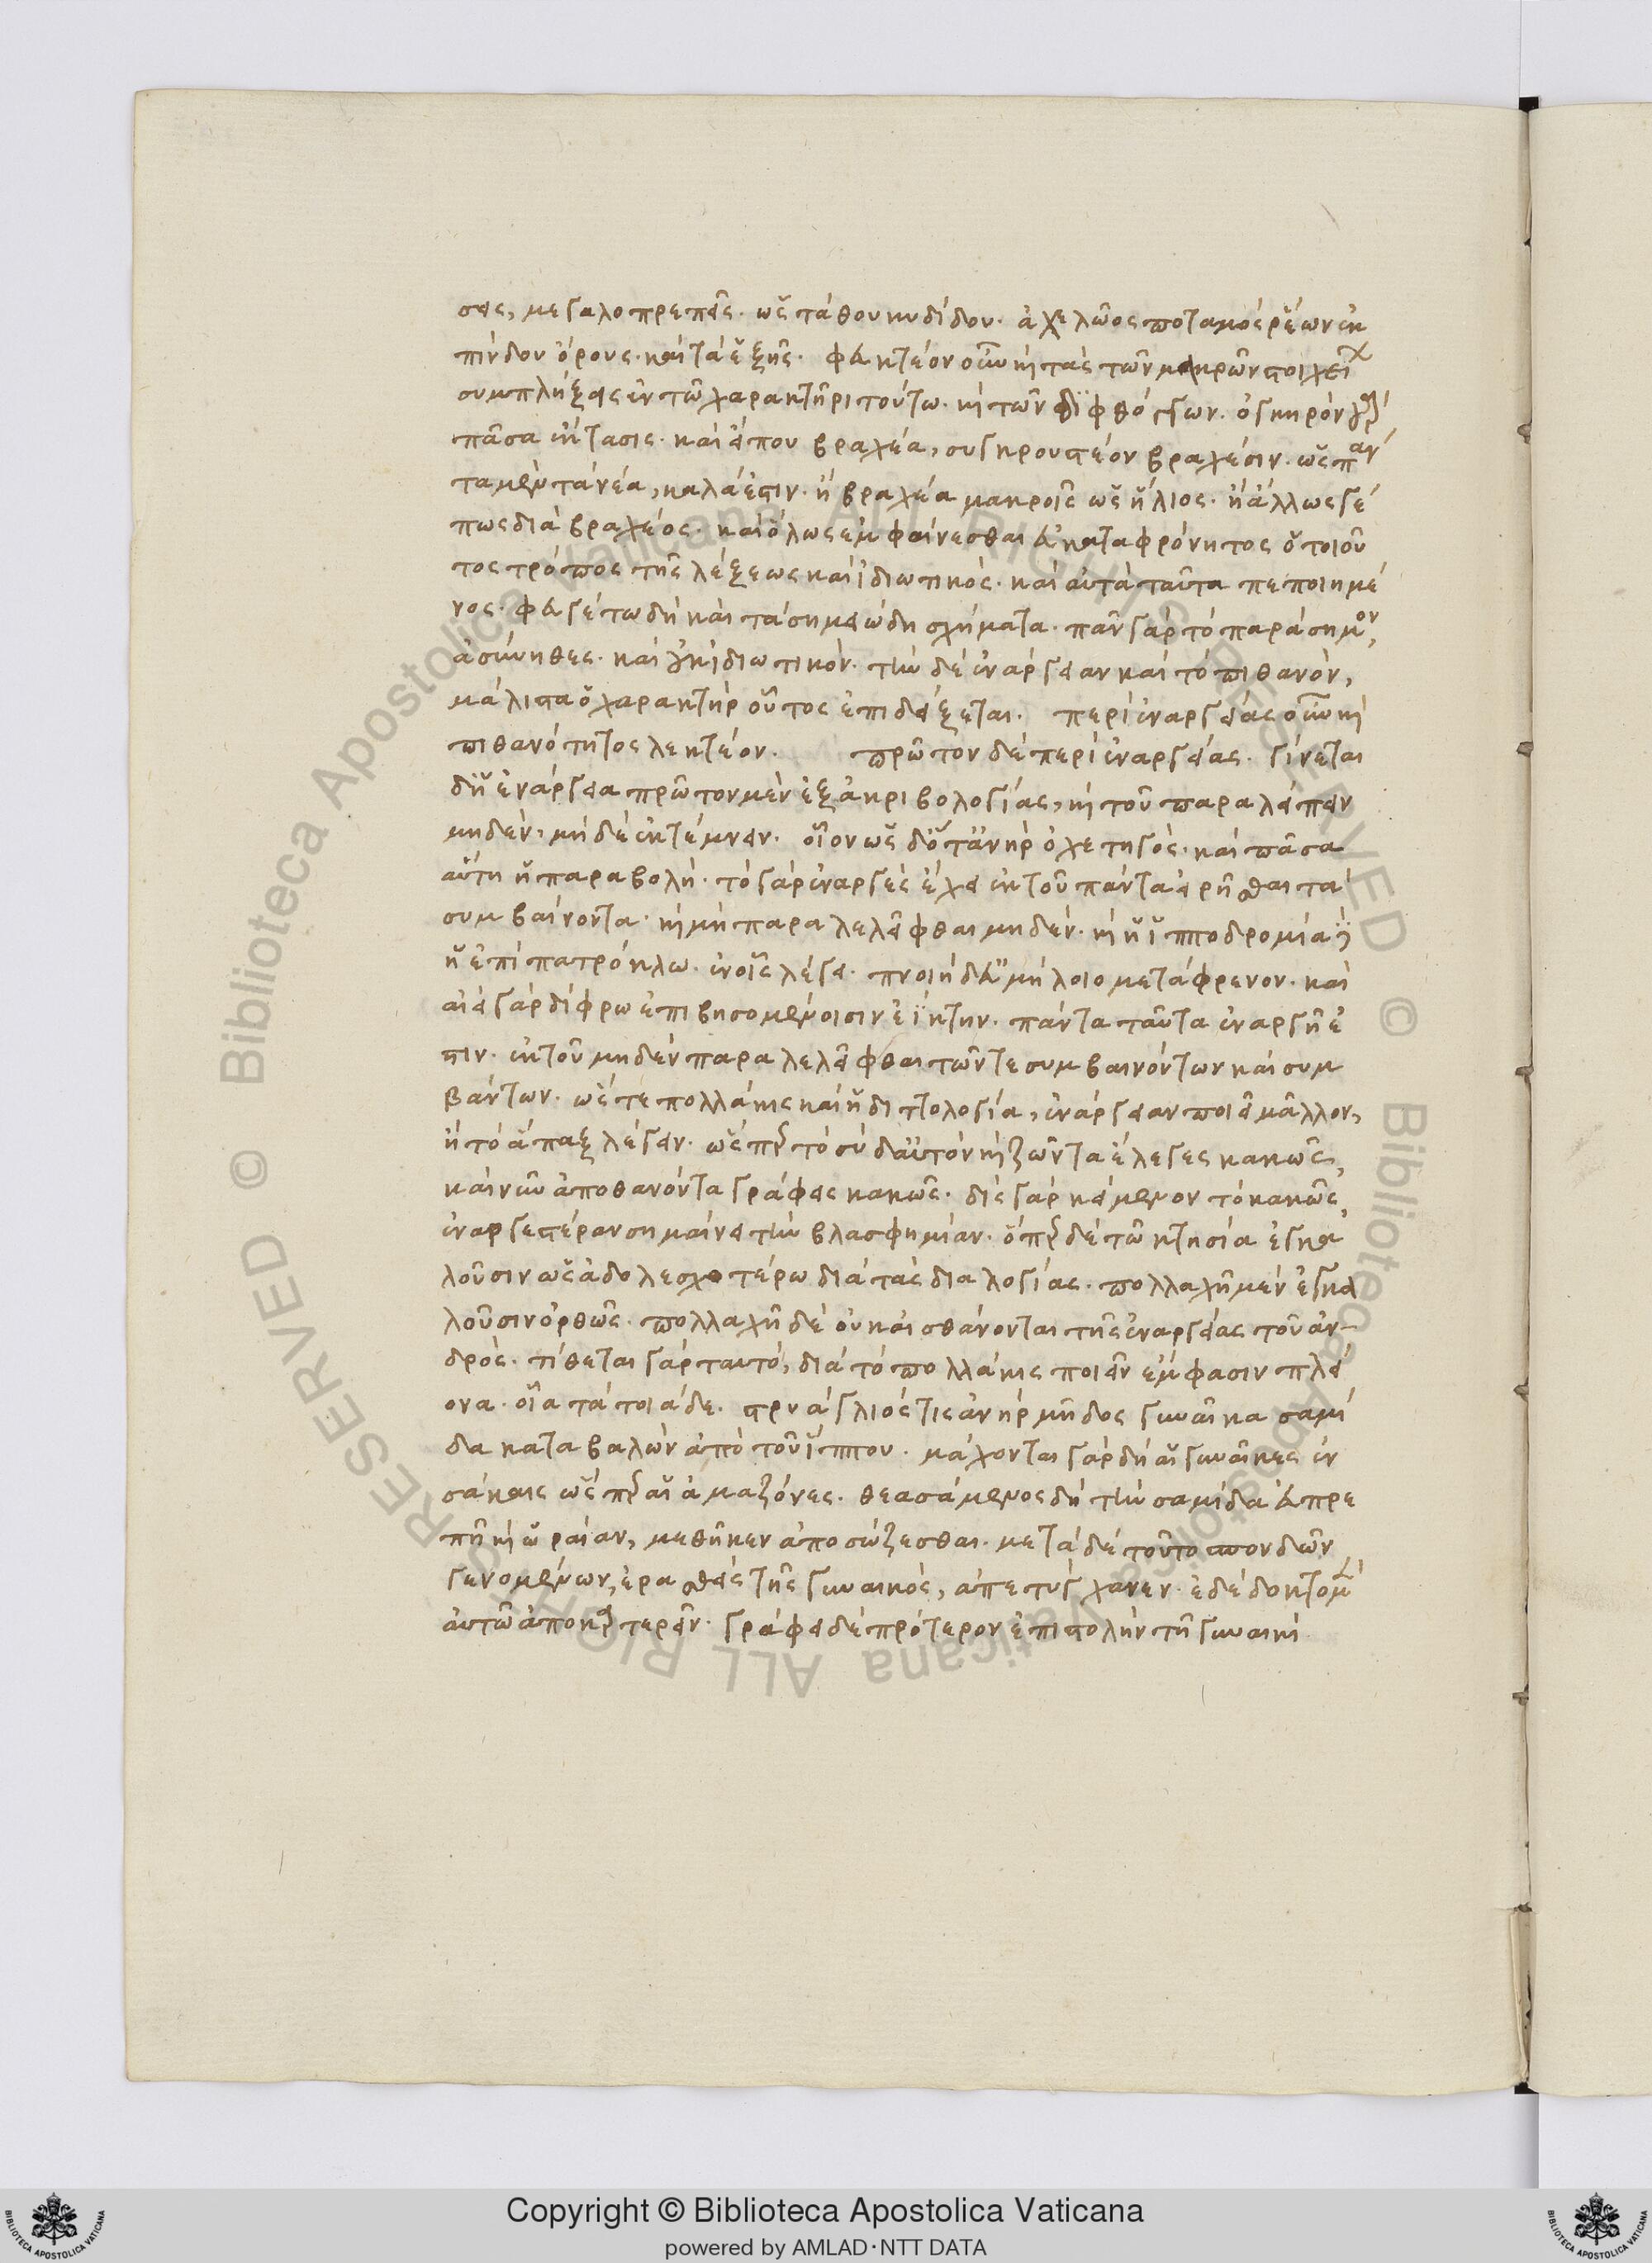 σεις, μεγαλοπρεπεῖς. ὡς τὰ θουκυδίδου. ἀχελῶος ποταμὸς ῥέων ἐκ
πίνδου ὄρους. καὶ τὰ ἑξῆς. φευκτέον οὖν καὶ τὰς τῶν μακρῶν στοιχείων
συμπλήξεις ἐν τῶ χαρακτῆρι τούτω. καὶ τῶν διφθόγγων. ὀγκηρὸν γὰρ
πᾶσα ἔκτασις. καὶ εἴ που βραχέα, συγκρουστέον βραχέσιν. ὡς πάν
τα μὲν τὰ νέα, καλά ἐστιν. ἢ βραχέα μακροῖς ὡς ἥλιος. ἢ ἄλλως γέ
πως διὰ βραχέος. καὶ ὅλως ἐμφαίνεσθαι εὐκαταφρόνητος ὁ τοιοῦ
τος τρόπος τῆς λέξεως καὶ ἰδιωτικός. καὶ αὐτὰ ταῦτα πεποιημέ
νος. φευγέτω δὴ καὶ τὰ σημειώδη σχήματα. πᾶν γὰρ τὸ παράσημον,
ἀσύνηθες. καὶ οὐκ ἰδιωτικόν. τὴν δὲ ἐνάργειαν καὶ τὸ πιθανὸν,
μάλιστα ὁ χαρακτὴρ οὗτος ἐπιδείξεται. περὶ ἐναργείας οὖν καὶ
πιθανότητος λεκτέον. πρῶτον δὲ περὶ ἐναργείας. γίνεται
δὴ ἐνάργεια πρῶτον μὲν ἐξ ἀκριβολογίας, καὶ τοῦ παραλείπειν
μηδὲν, μηδὲ ἐκτέμνειν. οἷον ὡς δ' ὅτ' ἀνὴρ ὀχετηγός. καὶ πᾶσα
αὕτη ἡ παραβολή. τὸ γὰρ ἐναργὲς ἔχει ἐκ τοῦ πάντα εἰρῆσθαι τὰ
συμβαίνοντα. καὶ μὴ παραλελεῖφθαι μηδέν. καὶ ἡ ἱπποδρομία δὲ
ἡ ἐπὶ πατρόκλω. ἐν οἷς λέγει. πνοιὴ δ' εὐμήλοιο μετάφρενον. καὶ
αἰεὶ γὰρ δίφρω ἐπιβησομένοισιν ἐΐκτην. πάντα ταῦτα ἐναργῆ ἐ
στιν. ἐκ τοῦ μηδὲν παραλελεῖφθαι τῶν τε συμβαινόντων καὶ συμ
βάντων. ὥστε πολλάκις καὶ ἡ διττολογία, ἐνάργειαν ποιεῖ μᾶλλον,
ἢ τὸ ἅπαξ λέγειν. ὥσπερ τὸ σὺ δ' αὐτὸν καὶ ζῶντα ἔλεγες κακῶς,
καὶ νῦν ἀποθανόντα γράφεις κακῶς. δὶς γὰρ κείμενον τὸ κακῶς,
ἐναργεστέραν σημαίνει τὴν βλασφημίαν. ὅπερ δὲ τῶ κτησία ἐγκα
λοῦσιν ὡς ἀδολεσχοτέρω διὰ τὰς διαλογίας. πολλαχῆ μὲν ἐγκα
λοῦσιν ὀρθῶς. πολλαχῆ δὲ οὐκ αἰσθάνονται τῆς ἐναργείας τοῦ ἀν-
δρός. τίθεται γὰρ ταυτὸ, διὰ τὸ πολλάκις ποιεῖν ἔμφασιν πλεί
ονα. οἷα τὰ τοιάδε. στρυάγλιός τις ἀνὴρ μῆδος γυναῖκα σαμί
δα καταβαλὼν ἀπὸ τοῦ ἵππου. μάχονται γὰρ δὴ αἱ γυναῖκες ἐν
σάκαις ὥσπερ αἱ ἀμαζόνες. θεασάμενος δὴ τὴν σαμίδα εὐπρε
πῆ καὶ ὡραίαν, μεθῆκεν ἀποσώζεσθαι. μετὰ δὲ τοῦτο σπονδῶν
γενομένων, ἐρασθεὶς τῆς γυναικὸς, ἀπετύγχανεν. ἐδέδοκτο μὲν
αὐτῶ ἀποκαρτερεῖν. γράφει δὲ πρότερον ἐπιστολὴν τῆ γυναικὶ
Copyright © Biblioteca Apostolica Vaticana
powered by AMLAD·NTT DATA